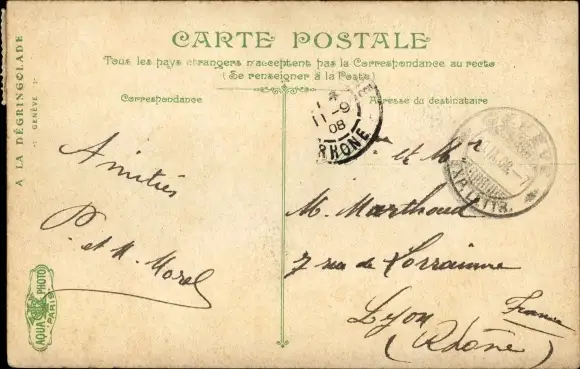 CARTE POSTALE
Tous les pays étrangers n'acceptent pas la Correspondance au recto
(Se renseigner à la Poste)
Correspondance
Adresse du destinataire
A LA DÉGRINGOLADE
GENÈVE
11-9
08
RHONE
GENÈVE
EXP. LETTR.
Amitiés
P. et M. Morel
et Mr
M. Marthoud
7 rue de Lorraine
Lyon
France
(Rhône)
AQUA PHOTO
PARIS